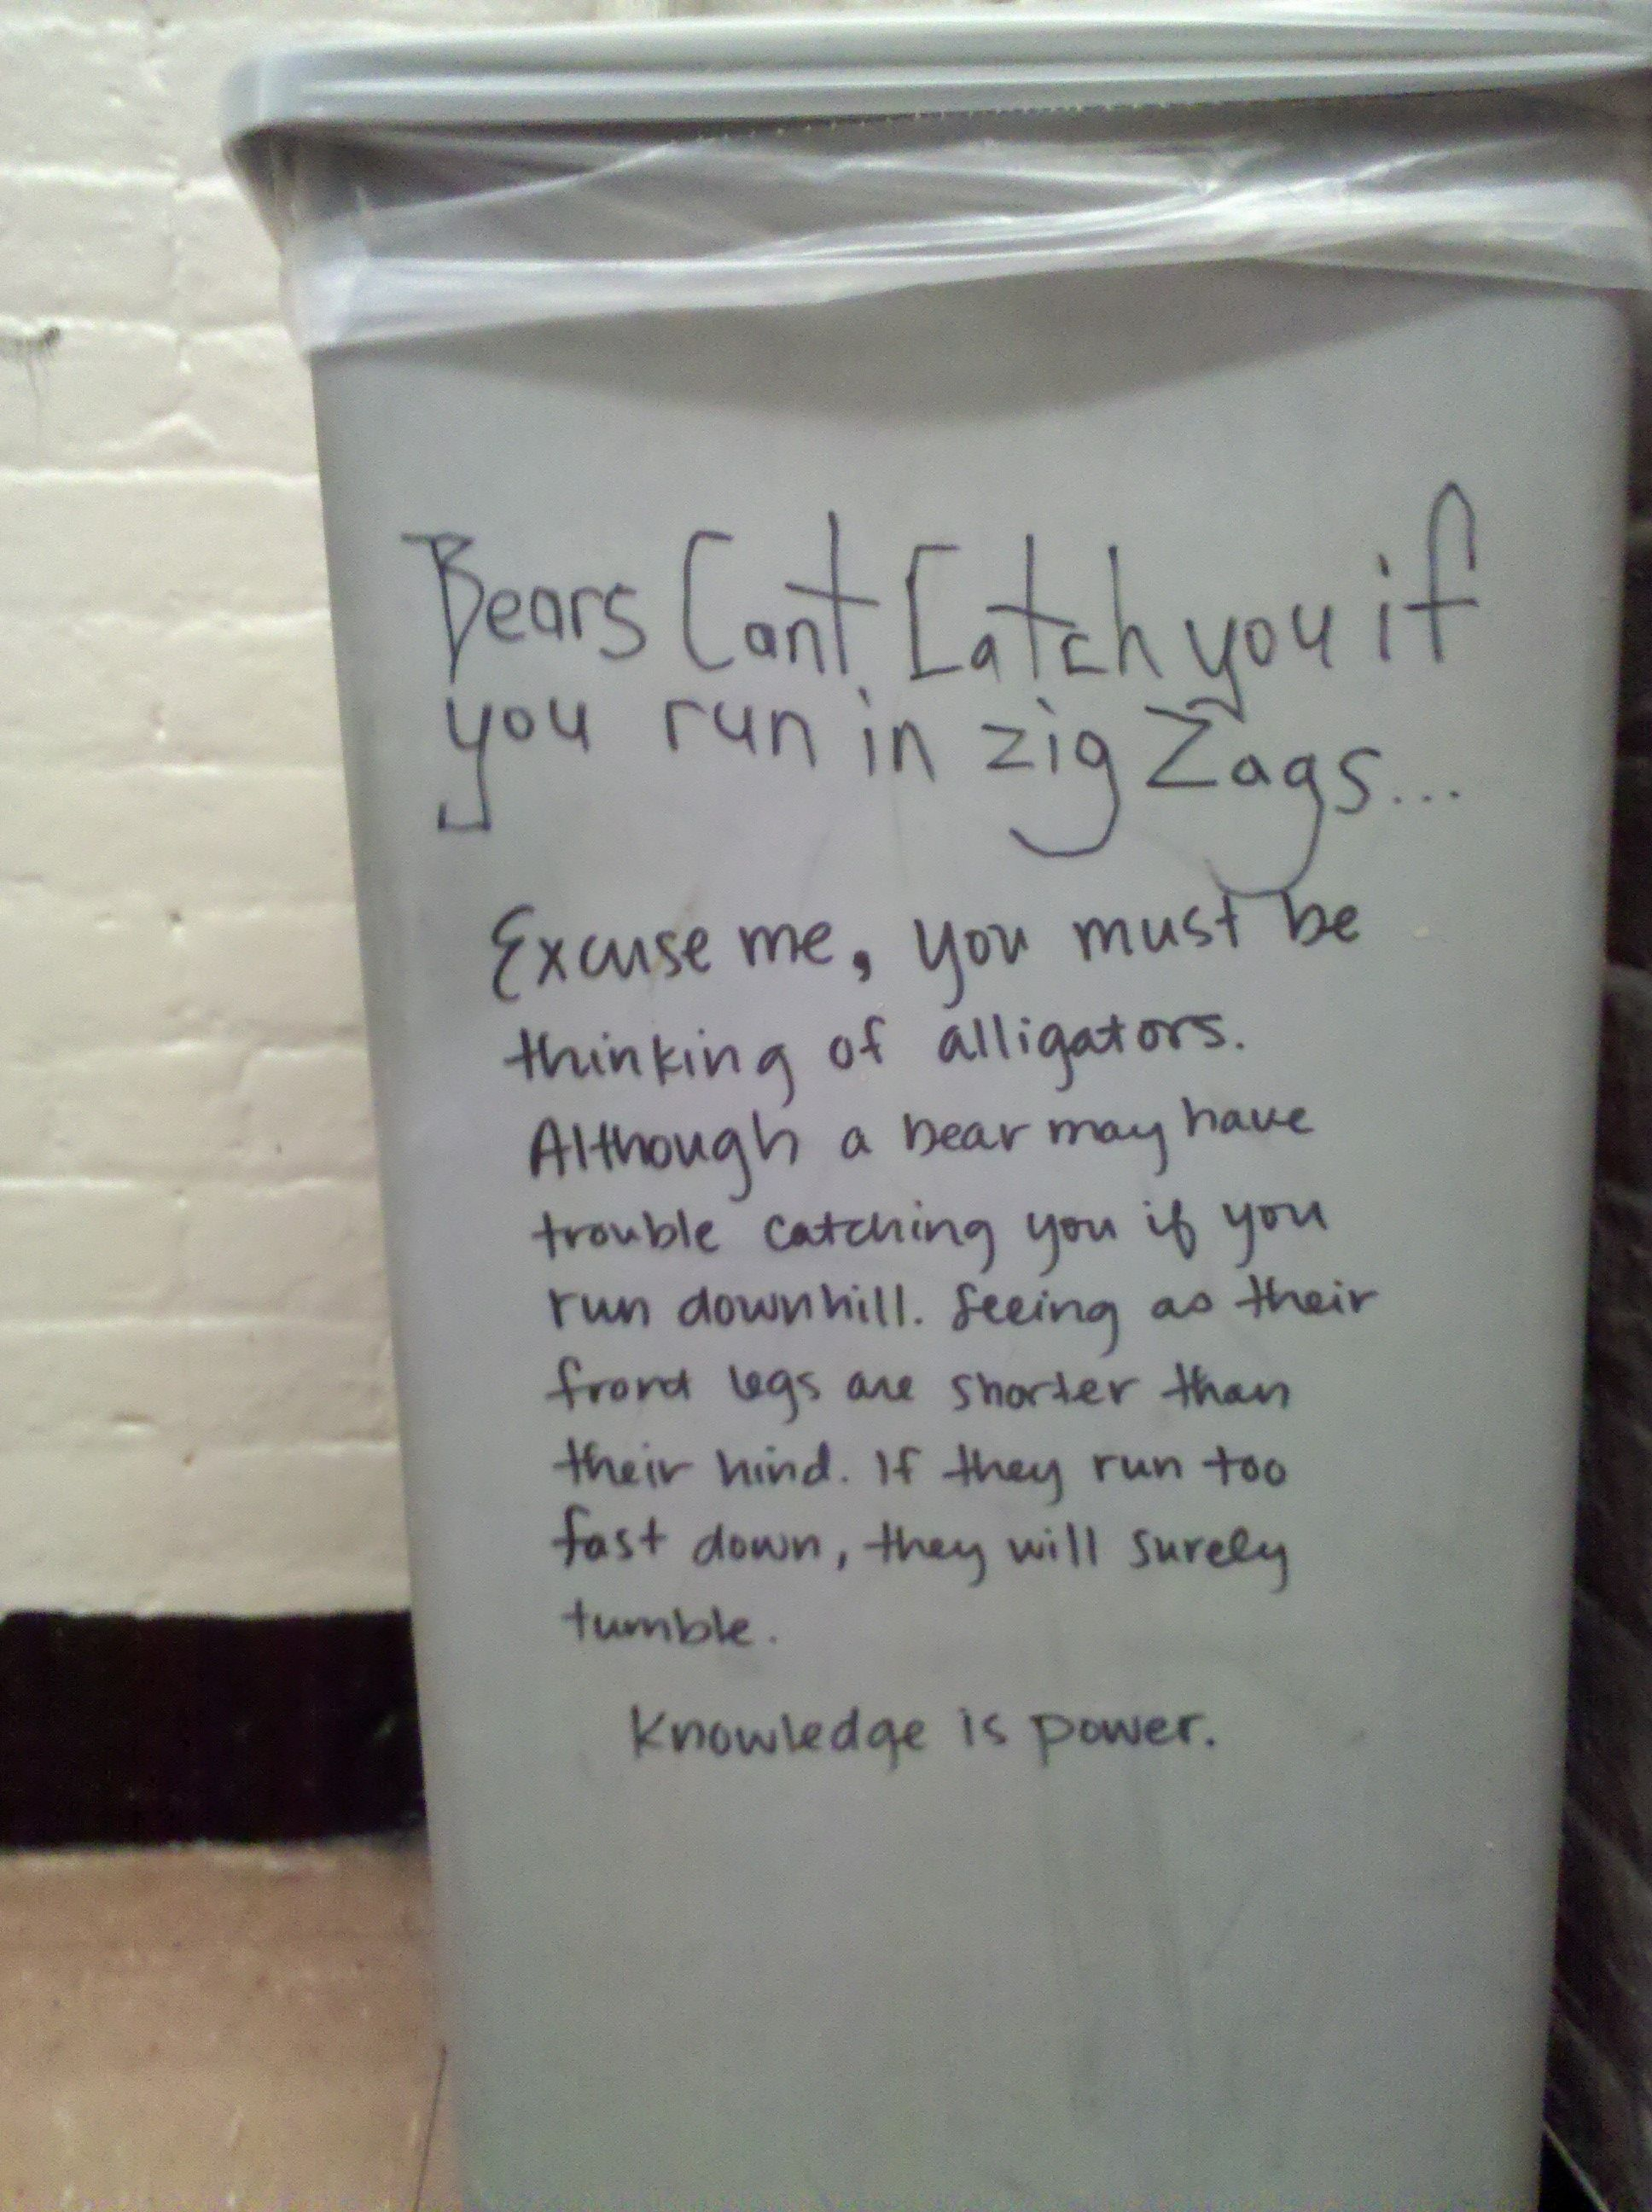 Bears Cant Catch you if
you run in zig Zags...
Excuse me, you must be
thinking of alligators.
Although a bear may have
trouble catching you if you
run downhill. Seeing as their
front legs are shorter than
their hind. If they run too
fast down, they will surely
tumble.
Knowledge is power.